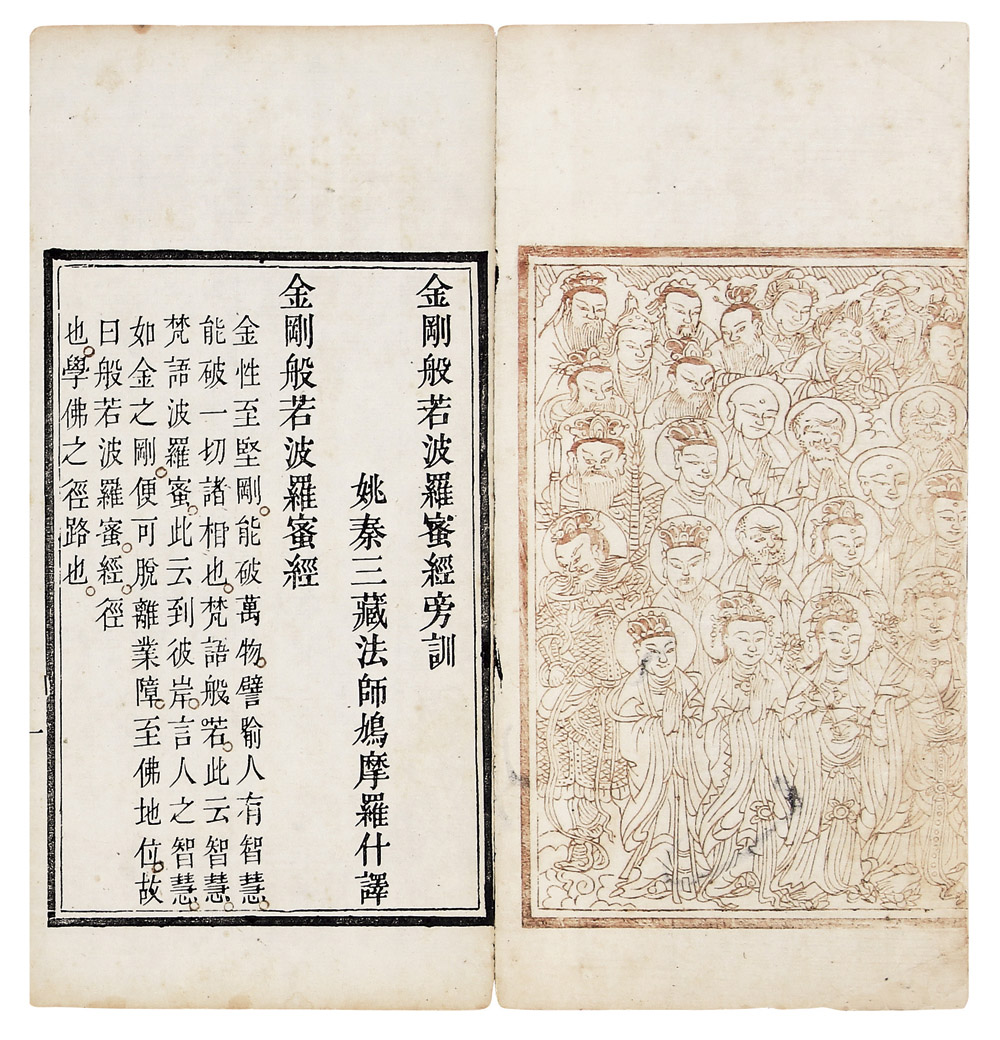 金剛般若波羅蜜經旁訓
姚秦三藏法師鳩摩羅什譯
金剛般若波羅蜜經
金性至堅剛。能破萬物。譬喻人有智慧。
能破一切諸相也。梵語般若。此云智慧。
梵語波羅蜜。此云到彼岸。言人之智慧。
如金之剛。便可脫離業障。至佛地位。故
曰般若波羅蜜經。徑
也。學佛之徑路也。